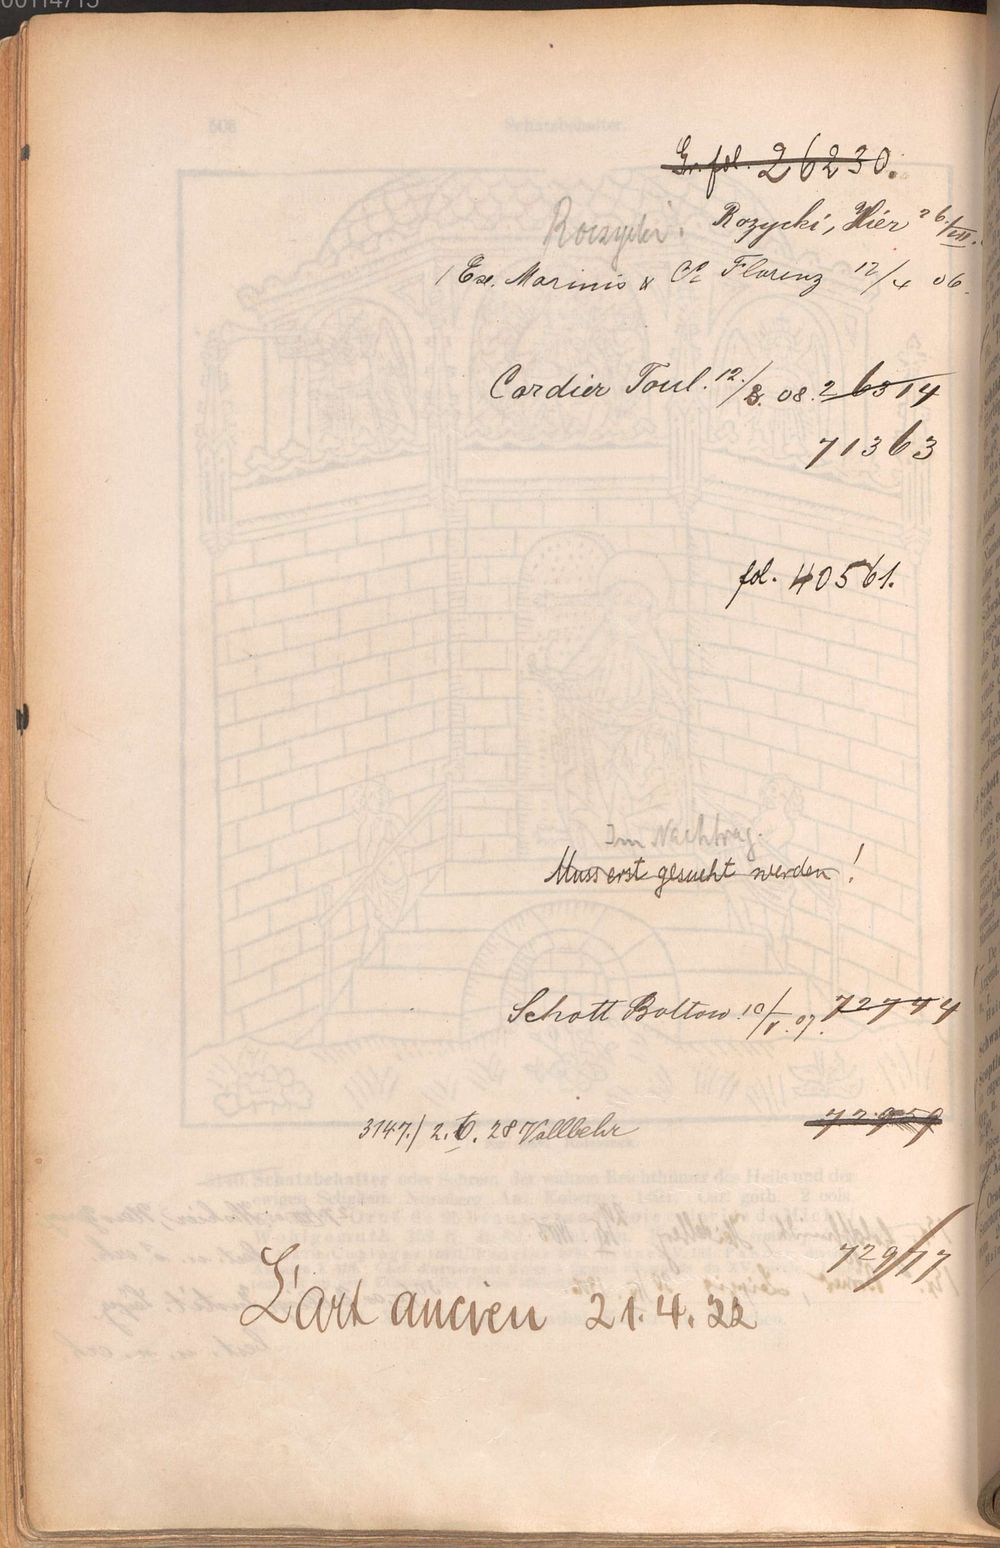 Gr. fol. 26230.
Rozycki, Hier 26./VII.
1 Ex. Marinis & Co Florenz 12/4 06.
Cordier Toul. 12./3. 08. 26314
71363
fol. 40561.
Im Nachtrag.
Muss erst gesucht werden!
Schott 10/V. 07. 72744
3147./ 2. 6. 28 Vollbehr
72917
L'art ancien 21.4.22